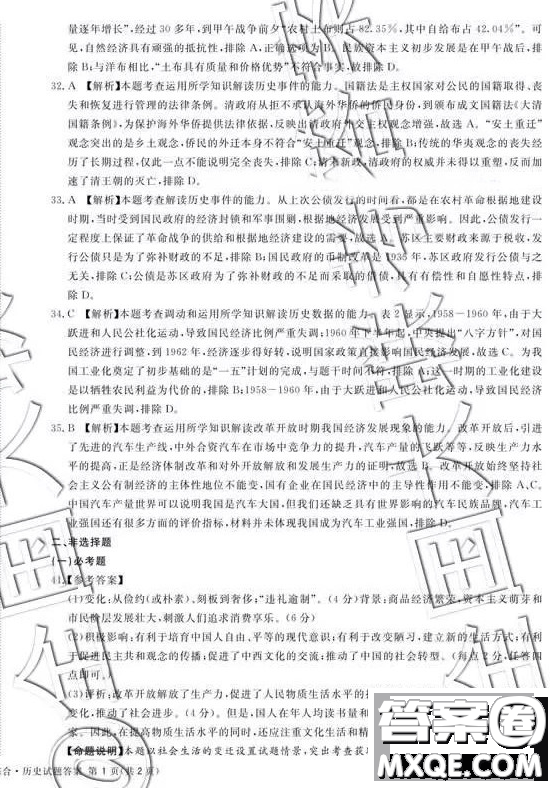 量逐年增长”,经过 30 多年,到甲午战争前夕“农村土布则占 82.35%,其中自给布占 42.04%”。可
见,自然经济具有顽强的抵抗性,排除 A,正确选项为 B。民族资本主义初步发展是在甲午战后,排
除 B;与洋布相比,“土布具有质量和价格优势”不符合史实,故排除 D。
32. A 【解析】本题考查运用所学知识解读历史事件的能力。国籍法是主权国家对公民的国籍取得、丧
失和恢复进行管理的法律条例。清政府从拒不承认海外华侨的侨民身份,到颁布成文国籍法《大清
国籍条例》,为保护海外华侨提供法律依据,反映出清政府外交主权观念增强,故选 A。“安土重迁”
观念突出的是乡土观念,侨民的外迁本身不符合“安土重迁”观念,排除 B;传统的华夷观念的丧失经
历了长期过程,仅此一点不能说明完全丧失,排除 C;清末新政,清政府的权威并未得以重塑,反而加
速了清王朝的灭亡,排除 D。
33. A 【解析】本题考查解读历史事件的能力。从上次公债发行的时间看,都是在农村革命根据地建设
时期,当时受到国民政府的经济封锁和军事围剿,根据地经济发展受到严重影响。因此,公债发行一
定程度上保证了革命战争的供给和根据地经济建设的需要,故选 A。苏区主要财政来源于税收,发
行公债只是为了弥补财政的不足,排除 B;国民政府的币制改革是 1935 年,苏区政府发行公债与之
无关,排除 C;公债是苏区政府为了弥补财政的不足而采取的借债,具有有偿性和自愿性特点,排
除 D。
34. C 【解析】本题考查调动和运用所学知识解读历史数据的能力。表 2 显示,1958-1960 年,由于大
跃进和人民公社化运动,导致国民经济比例严重失调;1960 年下半年起,中央提出“八字方针”,对国
民经济进行调整,到 1962 年,经济逐步得好转,说明国家政策直接影响国民经济发展,故选 C。为我
国工业化奠定了初步基础的是“一五”计划的完成,与题干时间不符,排除 A;这一时期的工业化建设
是以牺牲农民利益为代价的,排除 B;1958-1960 年,由于大跃进和人民公社化运动,导致国民经济
比例严重失调,排除 D。
35. B 【解析】本题考查运用所学知识解读改革开放时期我国经济发展现象的能力。改革开放后,引进
了先进的汽车生产线,中外合资汽车在市场中竞争力的提升,汽车产量的飞跃等等,反映生产力水
平的提高,正是经济体制改革和对外开放解放和发展生产力的证明,故选 B。改革开放始终坚持社
会主义公有制经济的主体性地位不能变,国有企业在国民经济中的主导性作用不能变,排除 A、C。
中国汽车产量世界可以说明我国是汽车大国,但我们还缺乏具有世界影响的汽车民族品牌,汽车工
业强国还有很多方面的评价指标,材料并未体现我国成为汽车工业强国,排除 D。
二、非选择题
(一)必考题
41.【参考答案】
(1)变化:从俭约(或朴素)、刻板到奢侈;“违礼逾制”。(4 分)背景:商品经济繁荣,资本主义萌芽和
市民阶层发展壮大,刺激人们追求消费享乐。(6 分)
(2)积极影响:有利于培育中国人自由、平等的现代意识;有利于改变社会陋习,建立新的生活方式;有利
于促进民主共和观念的传播;促进了中西文化的交流;推动了中国的社会转型。(每点 2 分,任答四
点即可。)
(3)评析:改革开放解放了生产力,促进了人民物质生活水平的
变化,推动了社会进步。(4 分)。但是,国人在年人均读书量和
家。因此,在提高物质生活水平的同时,还应注重文化生活和精
【命题说明】本题以社会生活的变迁设置试题情景,突出考查获
综合·历史试题答案 第 1 页(共 2 页)
答案卷